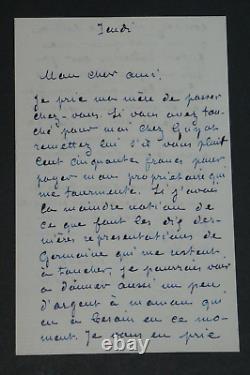 Jeudi
Mon cher ami.
Je prie ma mère de passer
chez-vous. Si vous avez tou-
ché pour moi chez
remettez lui s'il vous plaît
cent cinquante francs pour
payer mon propriétaire qui
me tourmente. Si j'avais
la moindre notion de
ce que font les dix der-
nières représentations de
Germaine qui me restent
à toucher, je pourrais voir
à donner aussi un peu
d'argent à maman qui
en a besoin en ce mo-
ment. Je vous en prie
© thebay.com